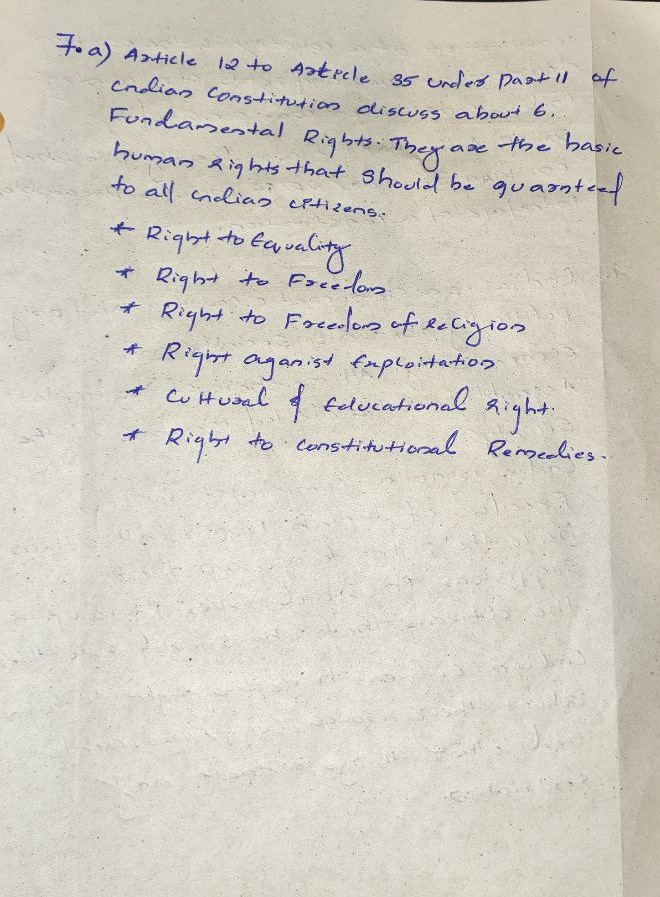 7.a) Article 12 to Article 35 under Part 11 of
Indian Constitution discuss about 6.
Fundamental Rights. They are the basic
human rights that should be guaranteed
to all Indian citizens.
* Right to Equality
* Right to Freedom
* Right to Freedom of Religion
* Right aganist Exploitation
* Cultural & Educational right.
* Right to constitutional Remedies.